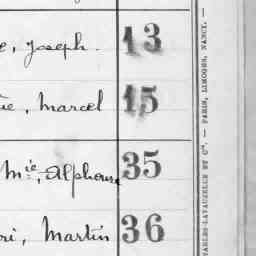 e, Joseph. 13
ie, Marcel 15
Mie, Alphonse 35
ri, Martin 36
CHARLES-LAVAUZELLE ET Cie. — PARIS, LIMOGES, NANCY. —